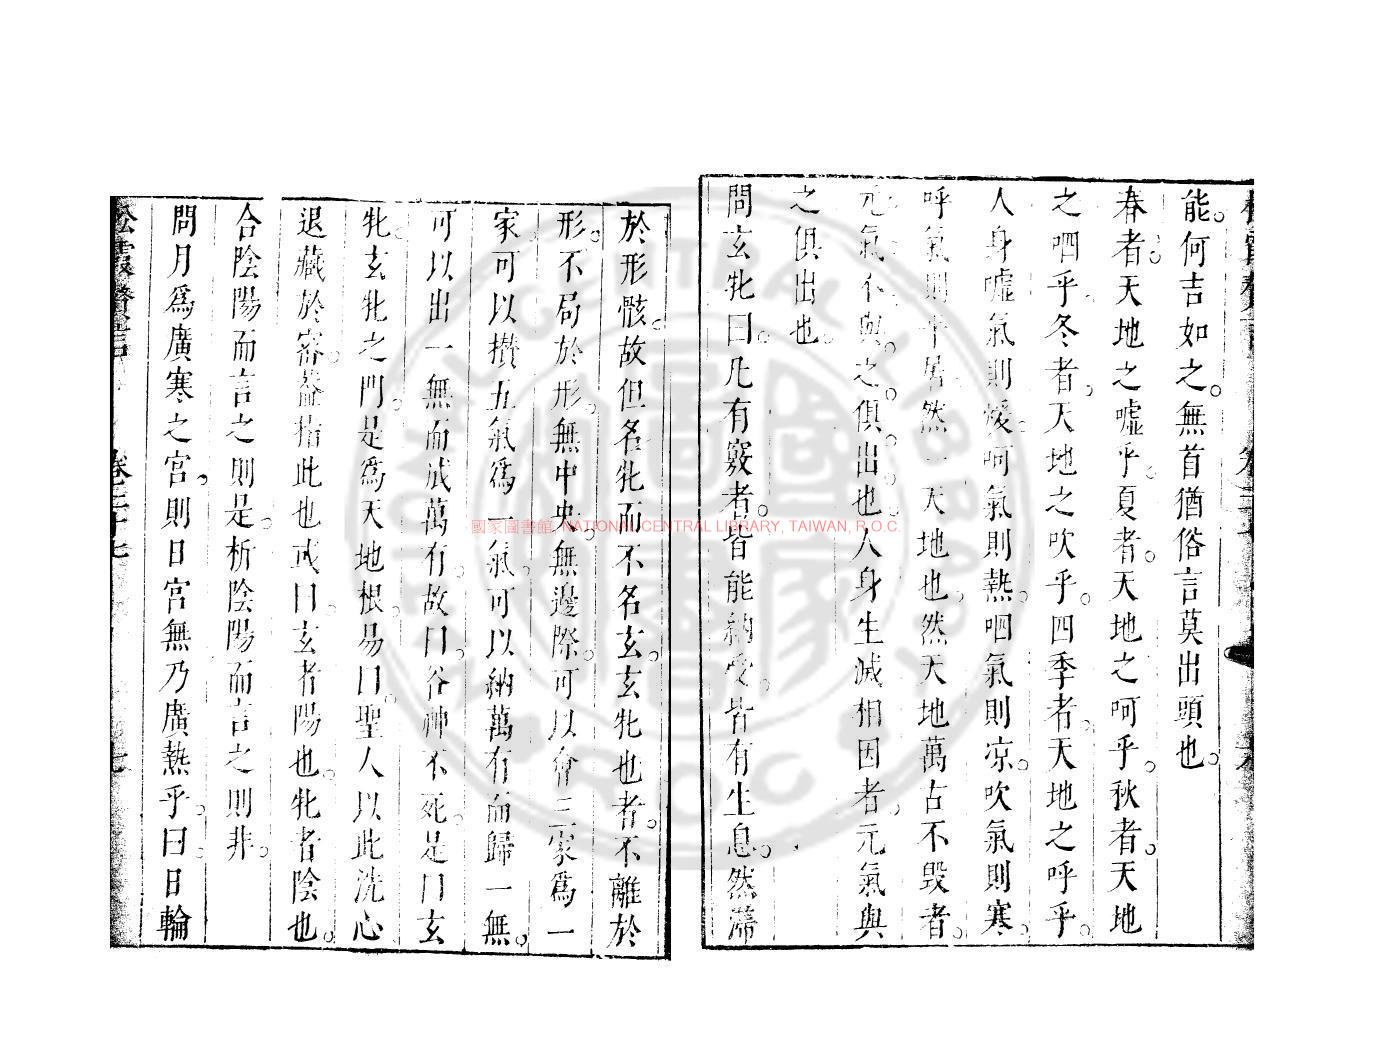 能。何吉如之。無首猶俗言莫出頭也。
春者。天地之噓乎。夏者。天地之呵乎。秋者天地
之呬乎。冬者。天地之吹乎。四季者。天地之呼乎。
人身噓氣則煖。呵氣則熱。呬氣則凉。吹氣則寒。
呼氣則平居然一天地也。然天地萬古不毀者。
元氣不與之俱出也。人身生滅相因者。元氣與
之俱出也。
問玄牝曰。凡有竅者。皆能納受。皆有生息。然滯
於形骸。故但名牝而不名玄。玄牝也者。不離於
形。不局於形。無中央。無邊際。可以會三家爲一
家。可以攢五氣爲一氣。可以納萬有而歸一無。
可以出一無而成萬有。故曰。谷神不死。是曰玄
牝。玄牝之門。是爲天地根。易曰。聖人以此洗心
退藏於密。蓋指此也。或曰。玄者陽也。牝者陰也。
合陰陽而言之則是。析陰陽而言之則非。
問月爲廣寒之宮。則日宮無乃廣熱乎。曰。日輪
卷二十七
七
國家圖書館 NATIONAL CENTRAL LIBRARY, TAIWAN, R.O.C.